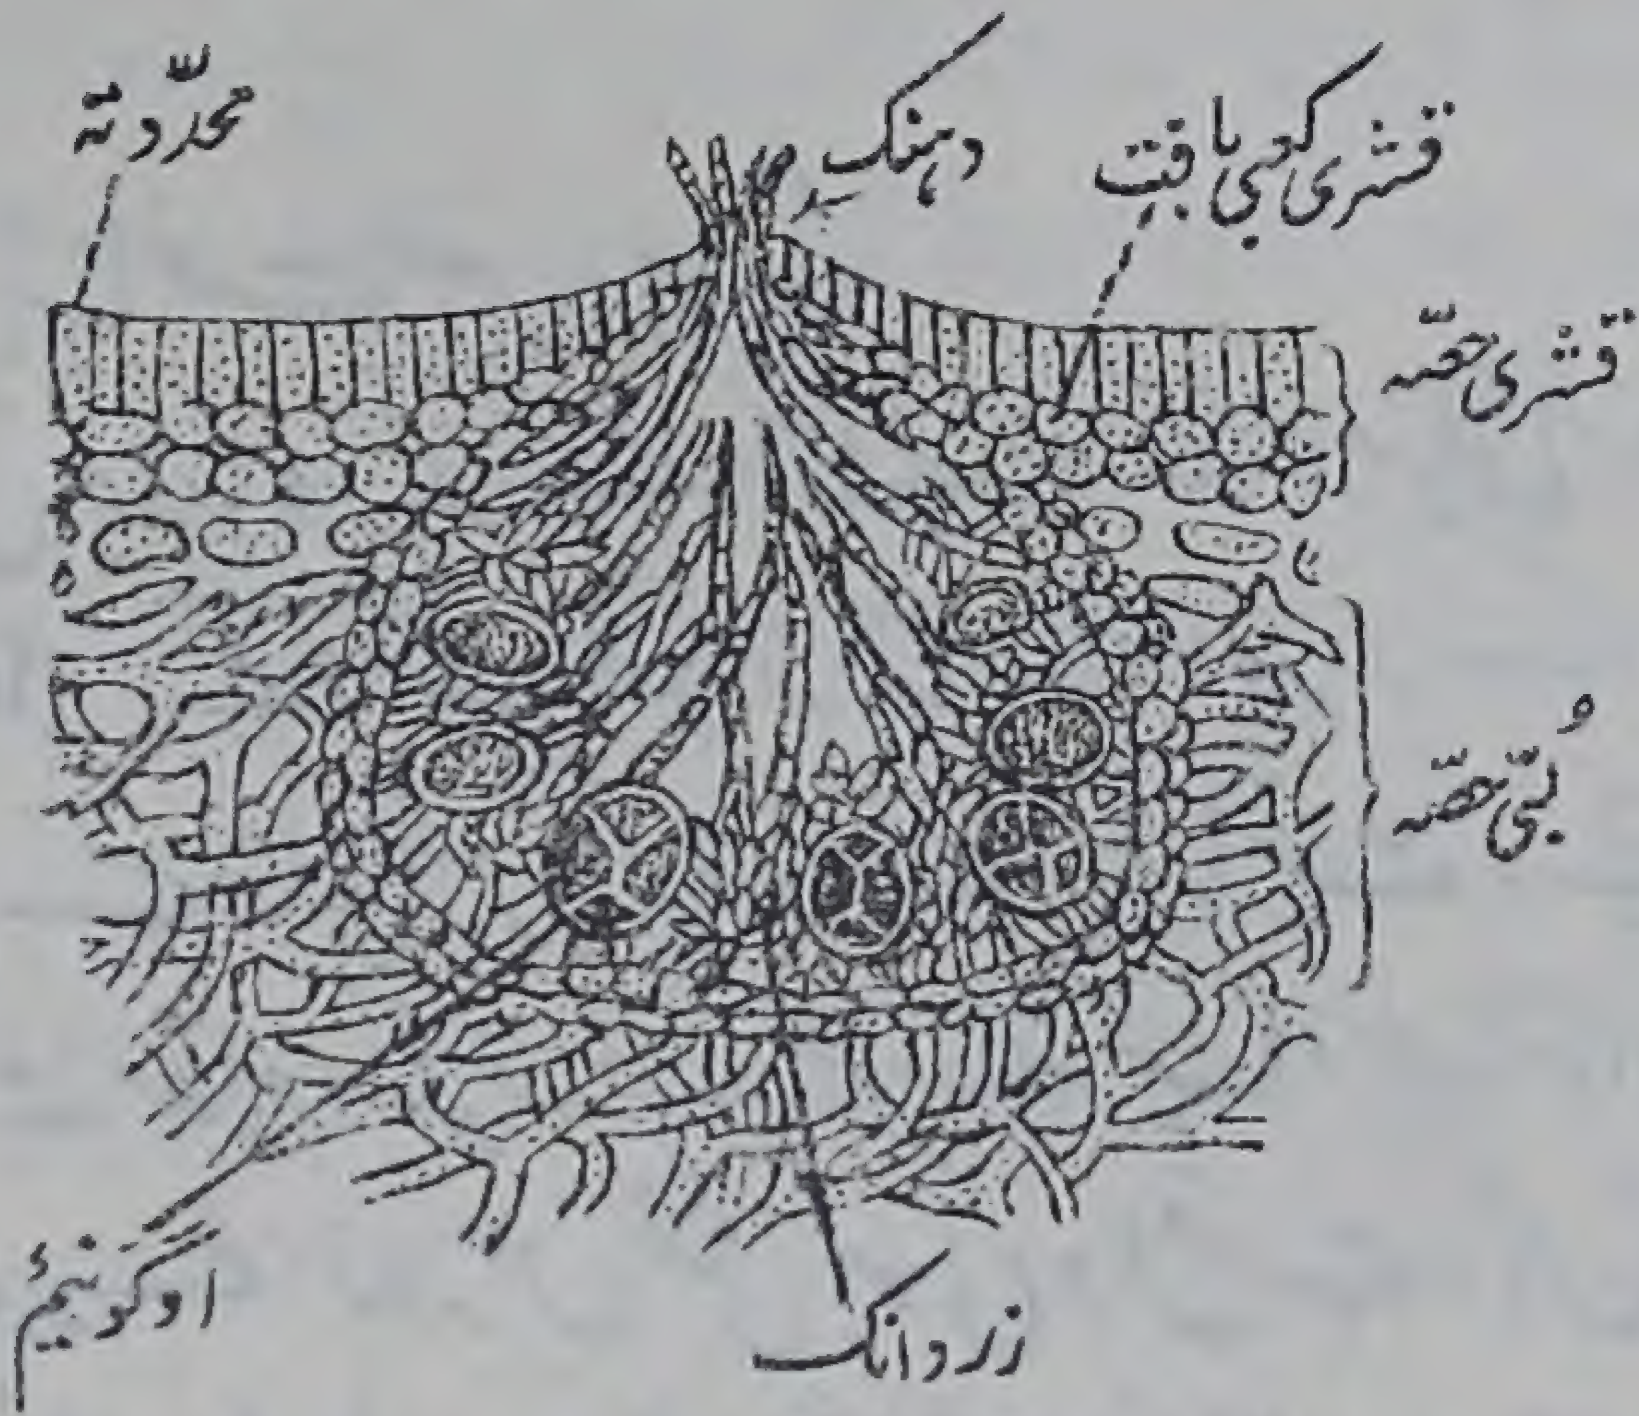 محدّد تہ
دہنک
قشری کعبی بافت
قشری حصّہ
لُبّی حصّہ
اوگونیم
زردانک